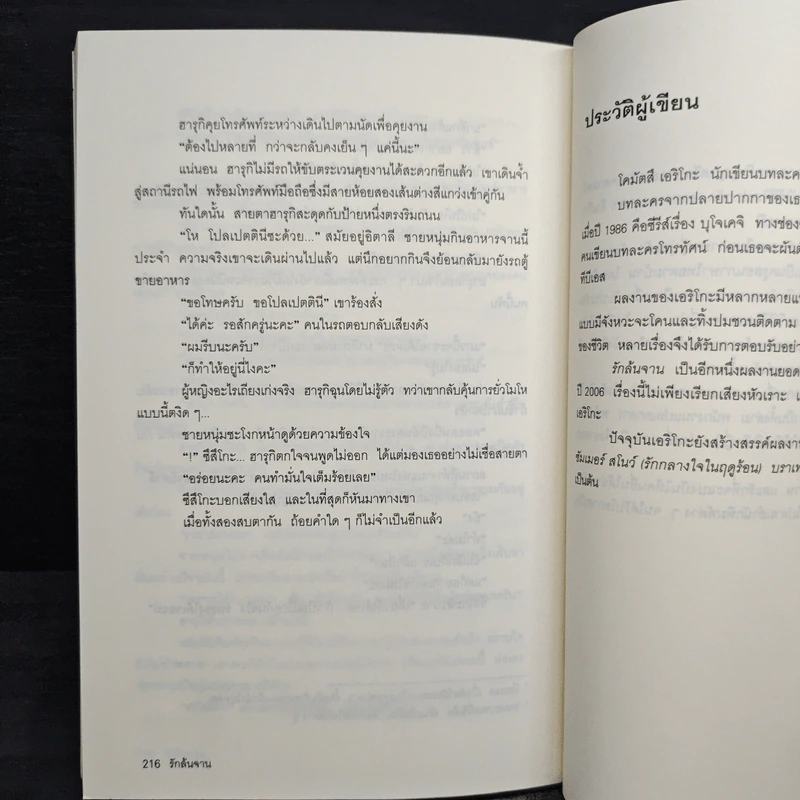 ฮารุกิคุยโทรศัพท์ระหว่างเดินไปตามนัดเพื่อคุยงาน
“ต้องไปหลายที่ กว่าจะกลับคงเย็น ๆ แค่นี้นะ”
แน่นอน ฮารุกิไม่มีรถให้ขับตระเวนคุยงานได้สะดวกอีกแล้ว เขาเดินจ้ำ
สู่สถานีรถไฟ พร้อมโทรศัพท์มือถือซึ่งมีสายห้อยสองเส้นต่างสีแกว่งเข้าคู่กัน
ทันใดนั้น สายตาฮารุกิสะดุดกับป้ายหนึ่งตรงริมถนน
“โห โปลเปตตินีซะด้วย...” สมัยอยู่อิตาลี ชายหนุ่มกินอาหารจานนี้
ประจำ ความจริงเขาจะเดินผ่านไปแล้ว แต่นึกอยากกินจึงย้อนกลับมายังรถตู้
ขายอาหาร
“ขอโทษครับ ขอโปลเปตตินี” เขาร้องสั่ง
“ได้ค่ะ รอสักครู่นะคะ” คนในรถตอบกลับเสียงดัง
“ผมรีบนะครับ”
“ก็ทำให้อยู่นี่ไงคะ”
ผู้หญิงอะไรเถียงเก่งจริง ฮารุกิฉุนโดยไม่รู้ตัว ทว่าเขากลับคุ้นการยั่วโมโห
แบบนี้ตงิด ๆ...
ชายหนุ่มชะโงกหน้าดูด้วยความข้องใจ
“!” ชีสึโกะ... ฮารุกิตกใจจนพูดไม่ออก ได้แต่มองเธออย่างไม่เชื่อสายตา
“อร่อยนะคะ คนทำมั่นใจเต็มร้อยเลย”
ชีสึโกะบอกเสียงใส และในที่สุดก็หันมาทางเขา
เมื่อทั้งสองสบตากัน ถ้อยคำใด ๆ ก็ไม่จำเป็นอีกแล้ว
216 รักล้นจาน
ประวัติผู้เขียน
โคมัตสึ เอริโกะ นักเขียนบทละคร
บทละครจากปลายปากกาของเธอ
เมื่อปี 1986 คือซีรีส์เรื่อง บุโจเคจิ ทางช่อง
คนเขียนบทละครโทรทัศน์ ก่อนเธอจะผันตั
ทีบีเอส
ผลงานของเอริโกะมีหลากหลายแ
แบบมีจังหวะจะโคนและทิ้งปมชวนติดตาม
ของชีวิต หลายเรื่องจึงได้รับการตอบรับอย่า
รักล้นจาน เป็นอีกหนึ่งผลงานยอด
ปี 2006 เรื่องนี้ไม่เพียงเรียกเสียงหัวเราะ แ
เอริโกะ
ปัจจุบันเอริโกะยังสร้างสรรค์ผลงา
ซัมเมอร์ สโนว์ (รักกลางใจในฤดูร้อน) บราเท
เป็นต้น